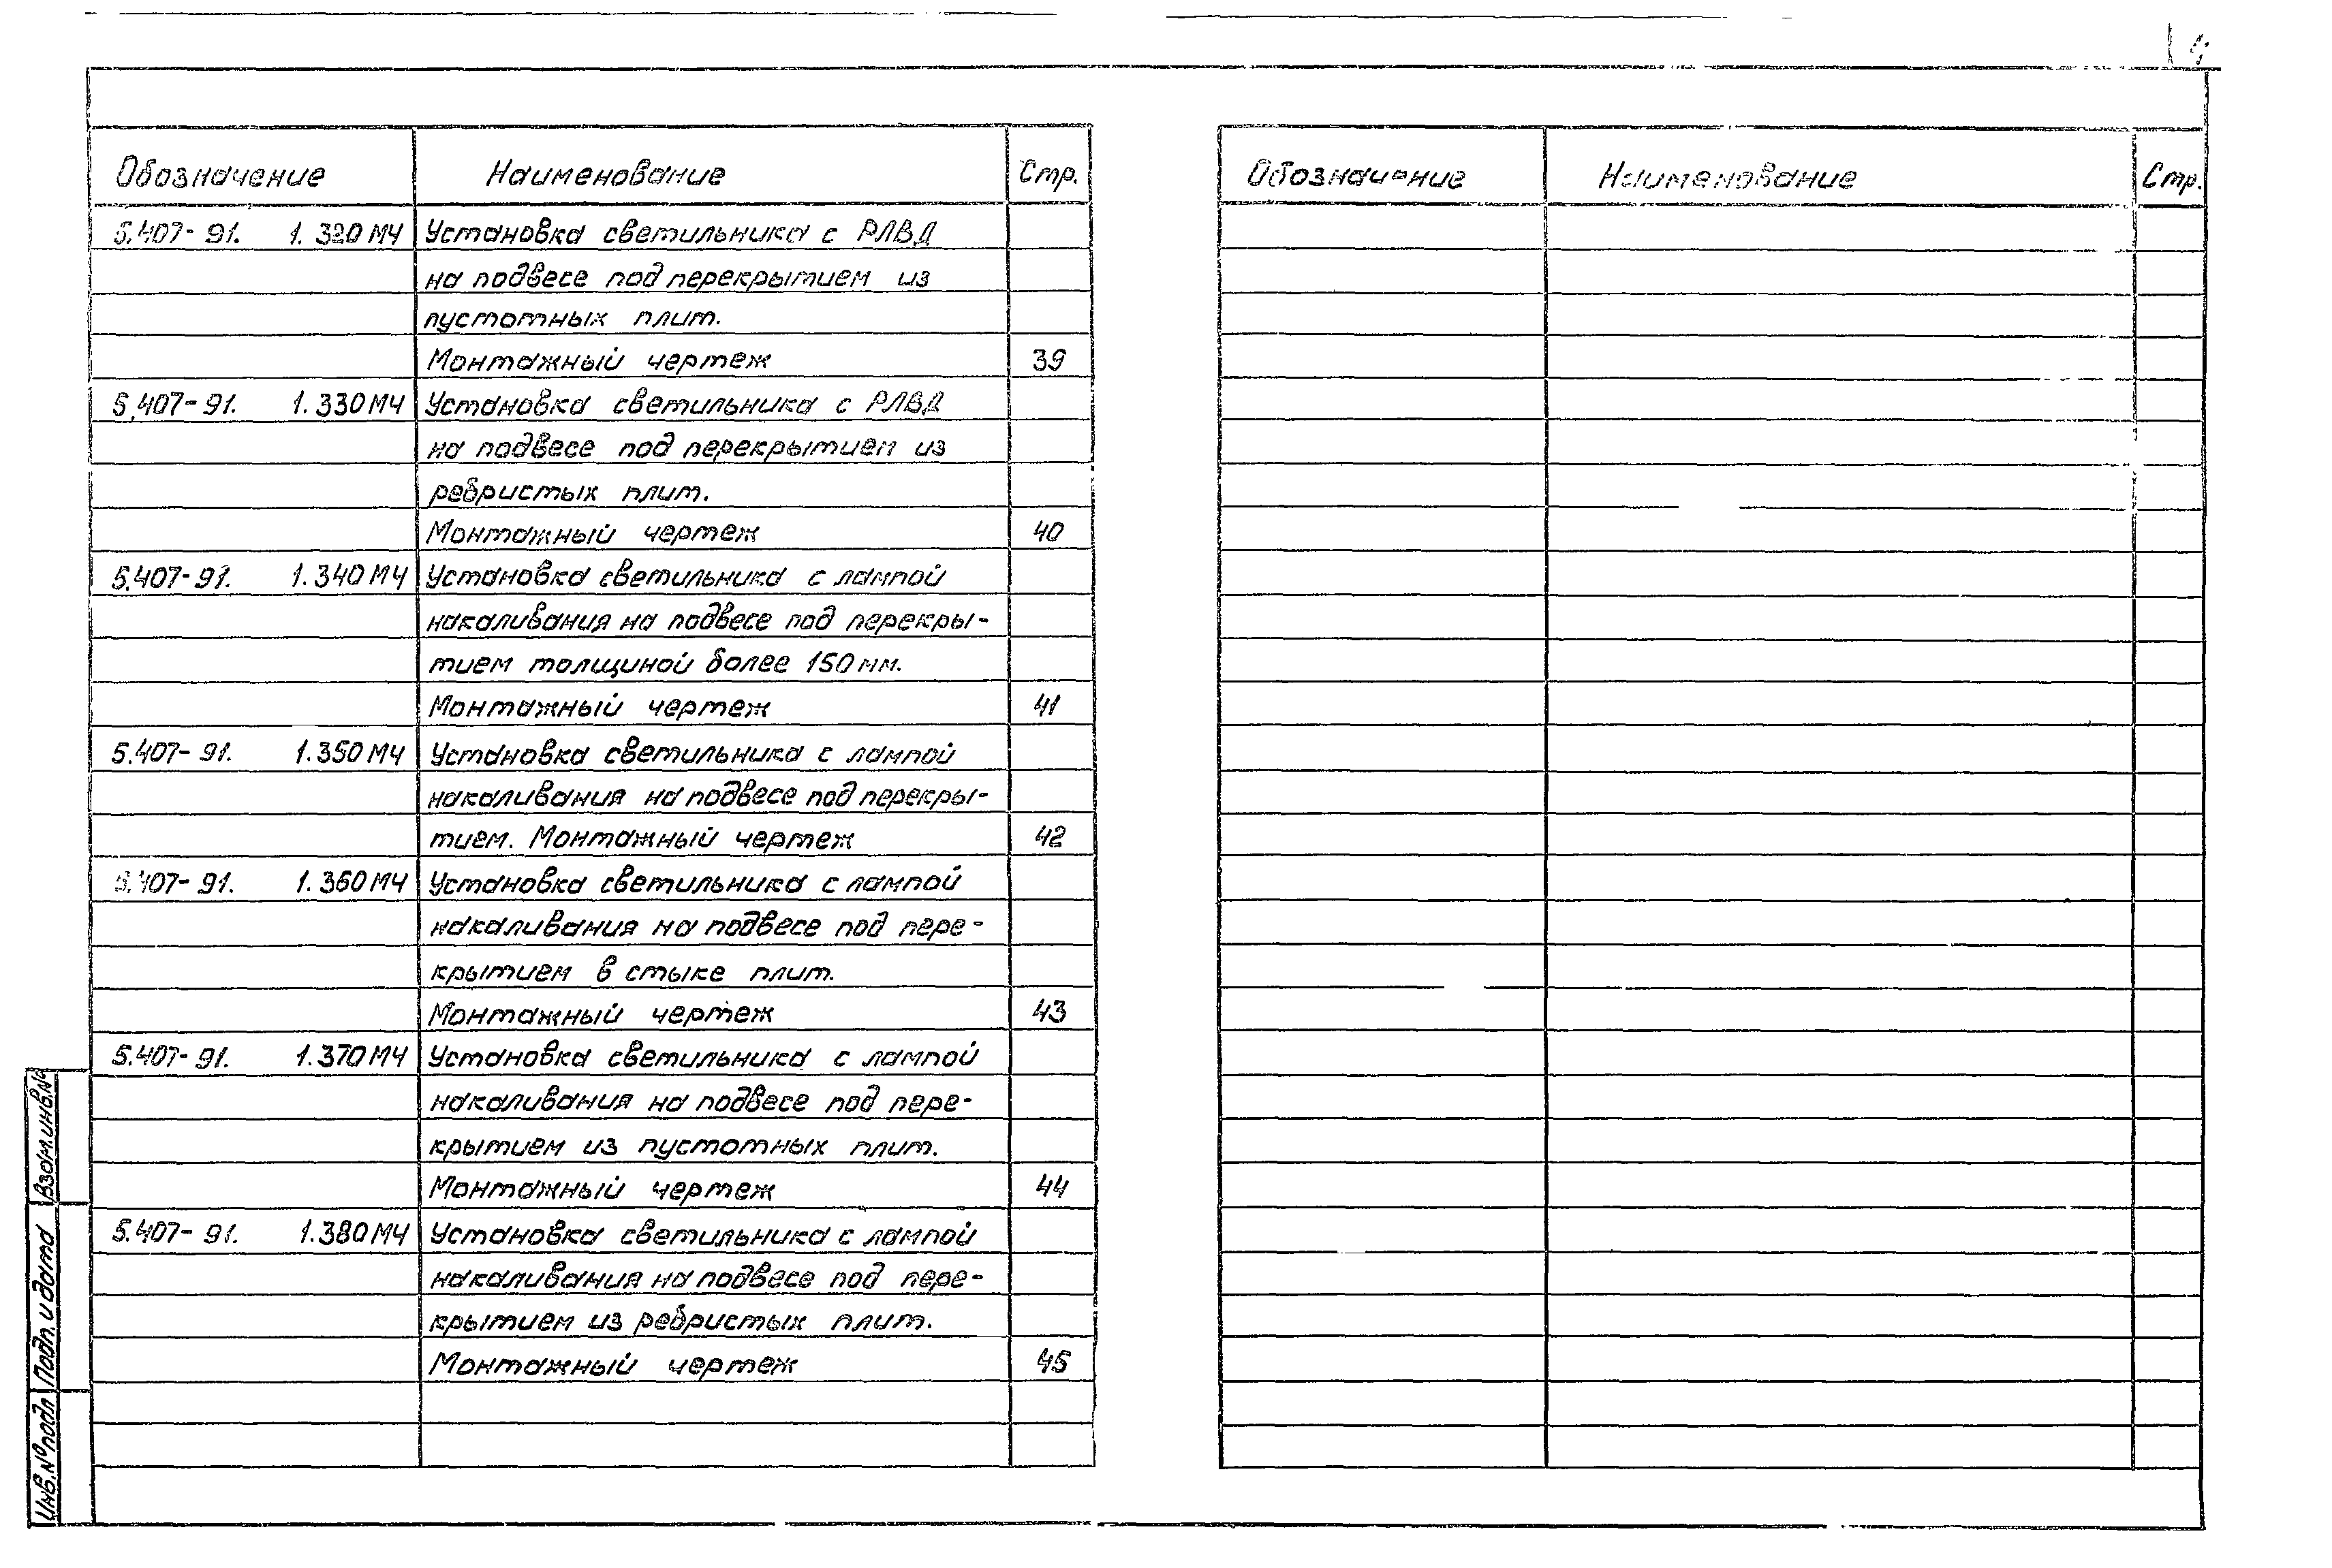 Обозначение Наименование Стр.
5.407-91. 1.320МЧ Установка светильника с РЛВД
на подвесе под перекрытием из
пустотных плит.
Монтажный чертеж 39
5.407-91. 1.330МЧ Установка светильника с РЛВД
на подвесе под перекрытием из
ребристых плит.
Монтажный чертеж 40
5.407-91. 1.340МЧ Установка светильника с лампой
накаливания на подвесе под перекры-
тием толщиной более 150мм.
Монтажный чертеж 41
5.407-91. 1.350МЧ Установка светильника с лампой
накаливания на подвесе под перекры-
тием. Монтажный чертеж 42
5.407-91. 1.360МЧ Установка светильника с лампой
накаливания на подвесе под пере-
крытием в стыке плит.
Монтажный чертеж 43
5.407-91. 1.370МЧ Установка светильника с лампой
накаливания на подвесе под пере-
крытием из пустотных плит.
Монтажный чертеж 44
5.407-91. 1.380МЧ Установка светильника с лампой
накаливания на подвесе под пере-
крытием из ребристых плит.
Монтажный чертеж 45
Обозначение Наименование Стр.
Взам.инв.№
Подп. и дата
Инв.№подл